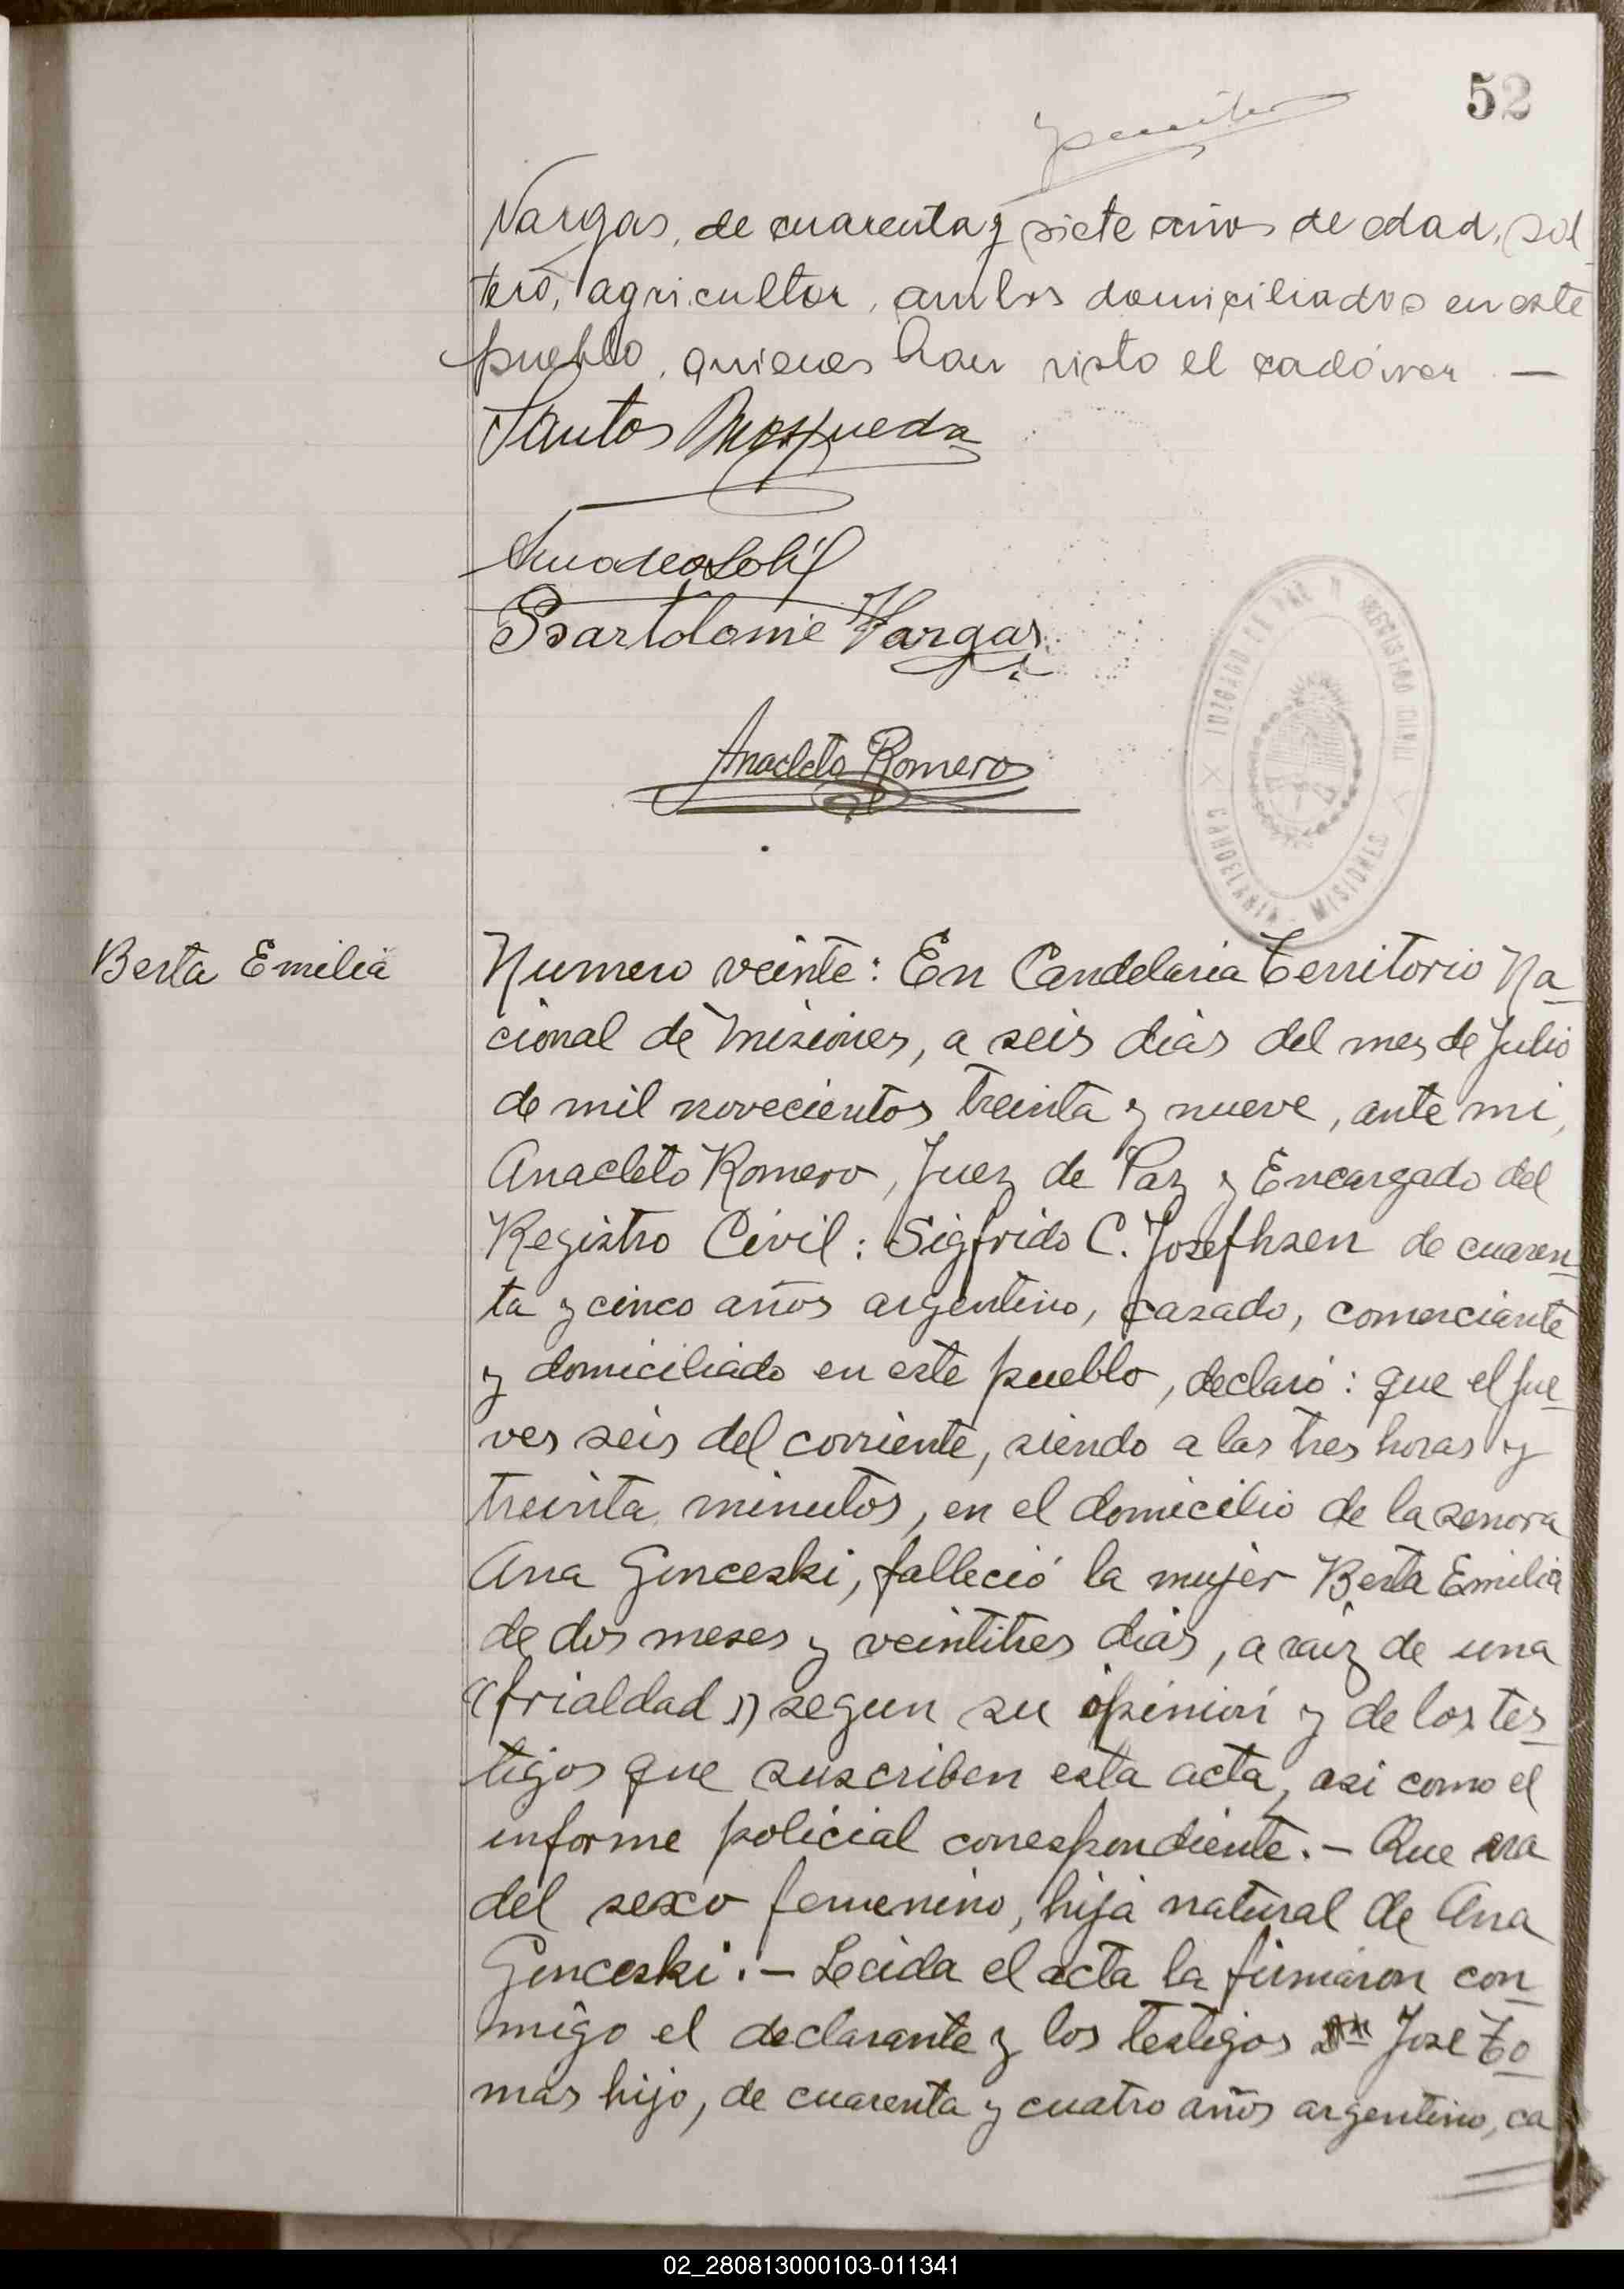 52
Vargas, de cuarenta y siete años de edad, sol
tero, agricultor, ambos domiciliados en este
pueblo, quienes han visto el cadáver —
Santos Mosqueda
Bartolomé Vargas
Anacleto Romero
JUZGADO DE PAZ Y REGISTRO CIVIL
CANDELARIA - MISIONES
Berta Emilia
Numero veinte: En Candelaria Territorio Na-
cional de Misiones, a seis dias del mes de Julio
de mil novecientos treinta y nueve, ante mi,
Anacleto Romero, Juez de Paz y Encargado del
Registro Civil: Sigfrido C. Josefhsen de cuaren-
ta y cinco años argentino, casado, comerciante
y domiciliado en este pueblo, declaró: que el jue-
ves seis del corriente, siendo a las tres horas y
treinta minutos, en el domicilio de la senora
Ana Genceski, falleció la mujer Berta Emilia
de dos meses y veintitres dias, a raiz de una
"frialdad") segun su opinión y de los tes-
tigos que suscriben esta acta, asi como el
informe policial correspondiente.- Que era
del sexo femenino, hija natural de Ana
Genceski.- Leida el acta la firmaron con-
migo el declarante y los testigos Jose To-
mas hijo, de cuarenta y cuatro años argentino, ca
02_280813000103-011341